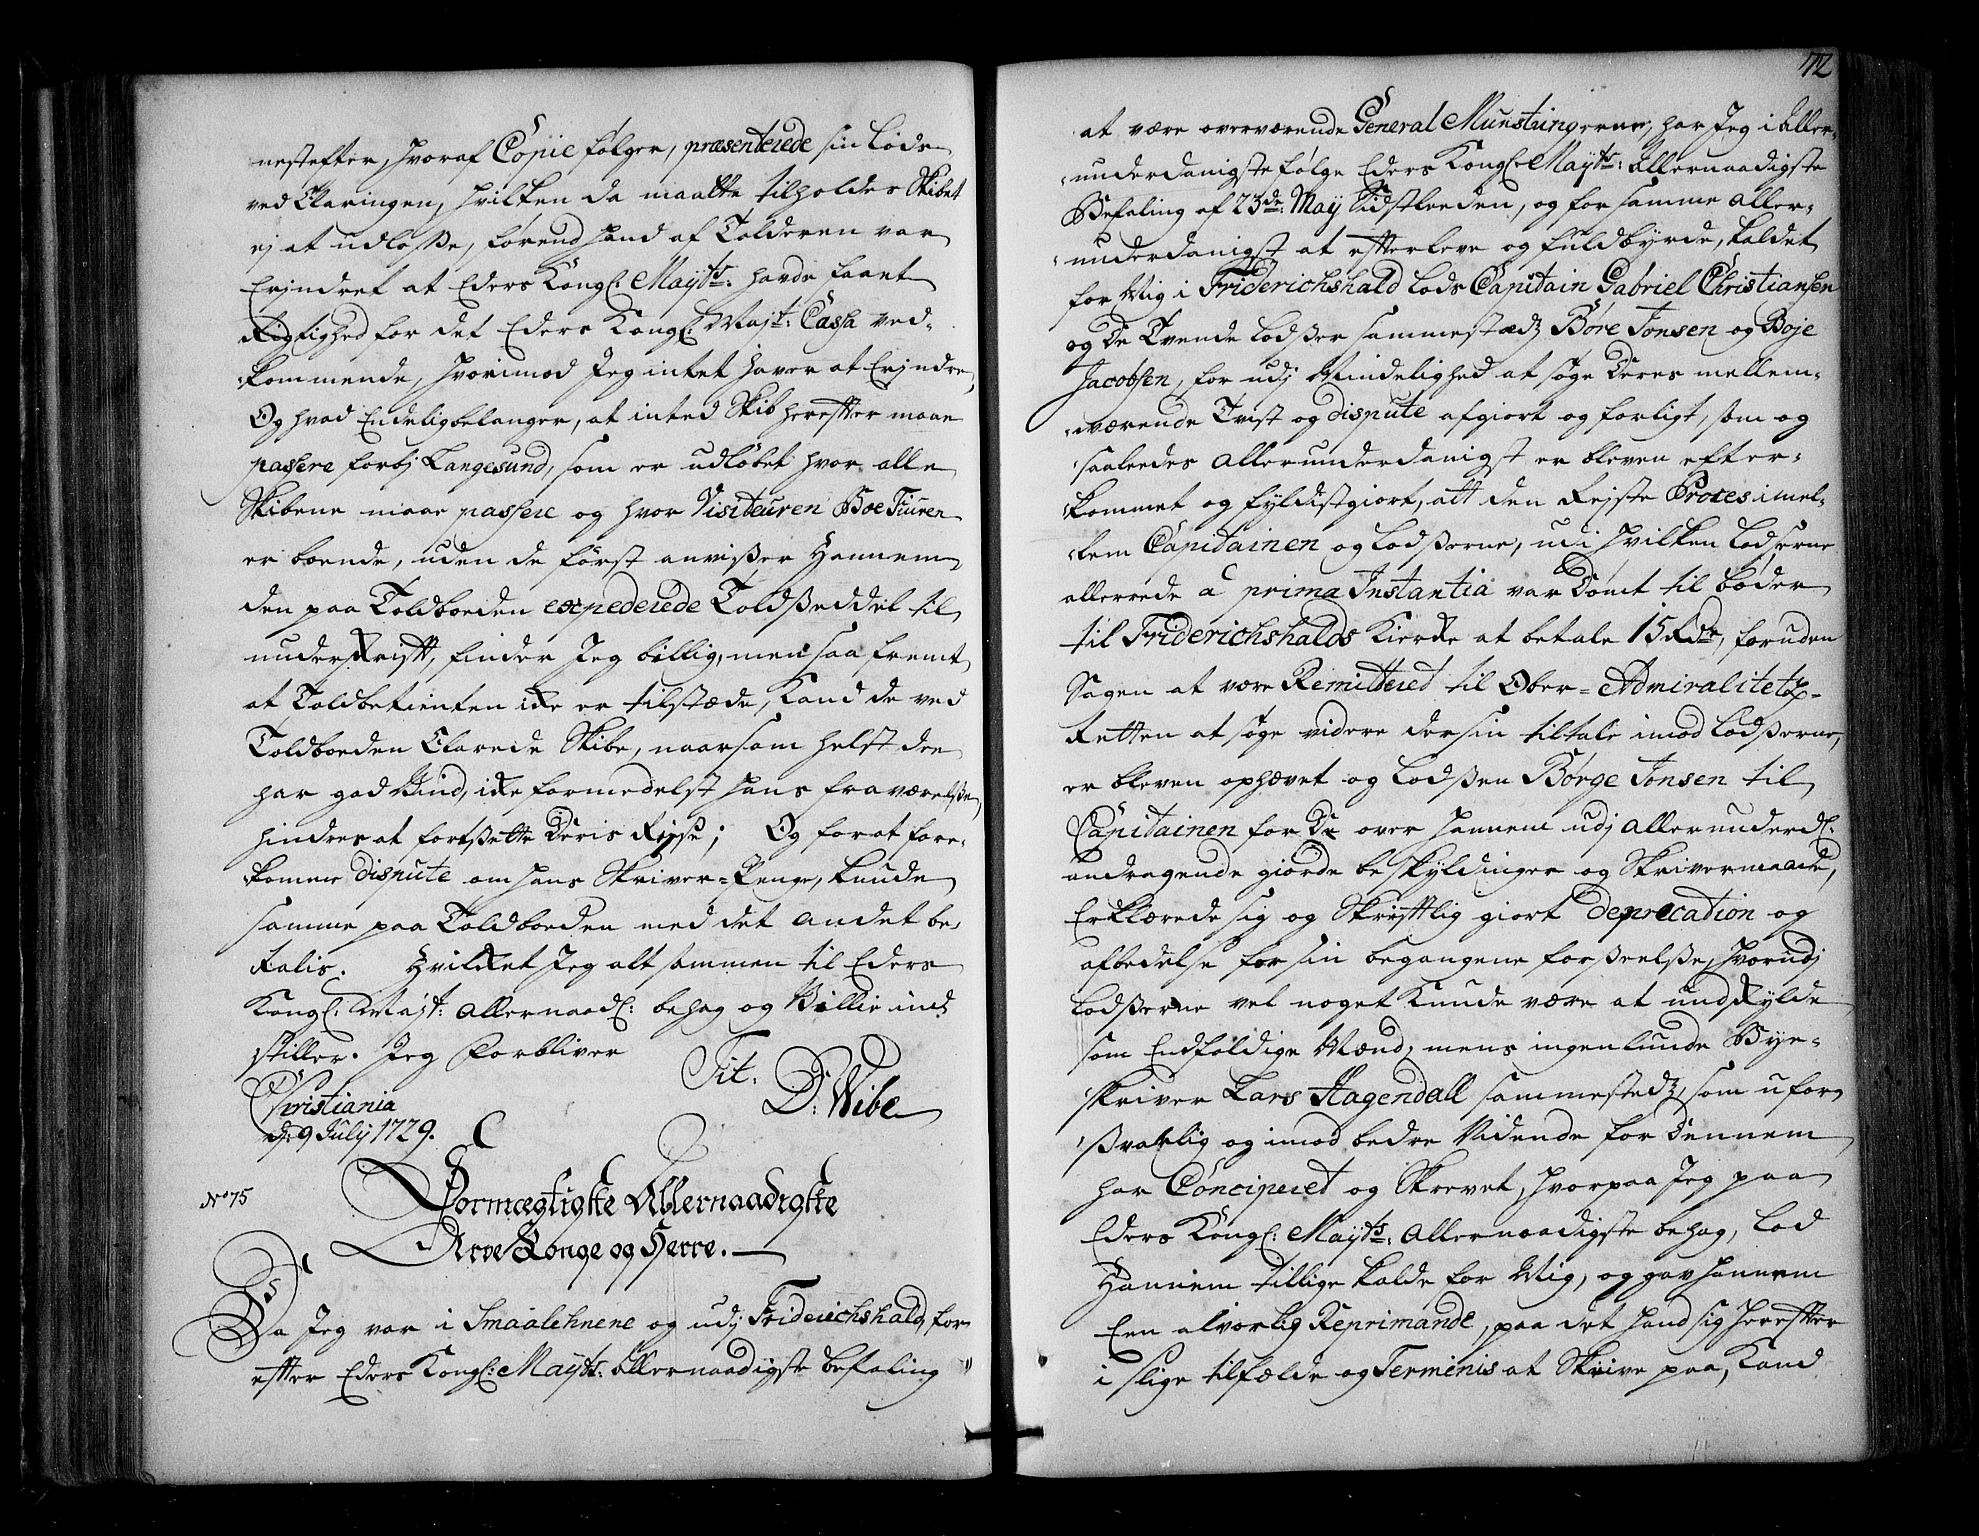 nestefter, hvoraf Copie følger, præsenterede sin Lods
ved Claringen, hvilken da maatte tilholdes Skibet
ej at udlosse, førend hand af Tolderen var
Erindret at Eders Kongl: Mayts: havde faaet
Rigtighed for det Eders Kongl: Majt: Cassa ved-
kommende, hvorimod Jeg intet haver at Erindre,
Og hvad Endelig belanger, at inted Skib herefter maae
passere forbj Langesund, som er udløbet hvor alle
Skibene maae passere og hvor Visiteuren Boe Friuren
er boende, uden de først anviser Hannem
den paa Toldboeden expederede Toldseddel til
underskrift, finder Jeg billig, men saa fremt
at Toldbetienten ike er tilstæde, kand de ved
Toldboeden Clarede Skibe, naarsom helst de
har god Vind, ike formedelst hans fraværelse
hindres at fortsette Deris Rejse; Og for at fore-
komme dispute om hans Skriver-Penge, kunde
samme paa Toldboeden med det andet be-
talis. Hvilket Jeg alt sammen til Eders
Kongl: Majt: Allernaadl: behag og Villie ind
stiller. Jeg Forbliver
Tit. D: Wibe
Christiania
d: 9 July 1729.
No 75
Stormægtigste Allernaadigste
Arve Konge og Herre.
Da Jeg var i Smaalehnene og udj Friderichshald, for
efter Eders Kongl: Mayts: Allernaadigste befaling
72
at være overværende General Munstringerne, har Jeg i Aller-
underdanigste følge Eders Kongl: Mayts: Allernaadigste
Befaling af 23de: May Sidstleeden, og for samme Aller-
underdanigst at efterleve og fuldbyrde, kaldet
for Mig i Friderichshald Lods Capitain Gabriel Christiansen
og De Tvende Lodser sammestædz Børe Jonsen og Boje
Jacobsen, for udj Mindelighed at søge Deres mellem-
værende Tvist og dispute afgiort og forligt, som og
saaledes Allerunderdanigst er bleven efter-
kommet og fyldistgiort, att den Rejste Proces imel-
lem Capitainen og Lodserne, udi hvilken Lodserne
allerede a prima Instantia var Dømt til bøder
til Friderichshalds Kierke at betale 15 Rdr, foruden
Sagen at være Remitteret til Ober-Admiralitetz-
Retten at søge videre dersin tiltale imod Lodserne,
er bleven ophævet og Lodsen Børge Jonsen til
Capitainen for De over hannem udj Allerunderdl:
andragende giorde beskyldinger og Skrivermaade,
Erklærede sig og Skriftlig giort deprecation og
afbedelse for sin begangene forseelse, hvorudj
Lodserne vel noget kunde være at undskylde
som Eenfoldige Mænd, mens ingenlunde Bye-
skriver Lars Hagendall sammestedz, som ufor-
svarlig og imod bedre Vidende for Dennem
har Conciperet og Skrevet, hvorpaa Jeg paa
Eders Kongl: Mayts: Allernaadigste behag, lod
Hannem tillige kalde for Mig, og gav hannem
Een alvorlig Reprimande, paa det hand sig herefter
i slige tilfælde og Terminis at Skrive paa, kand